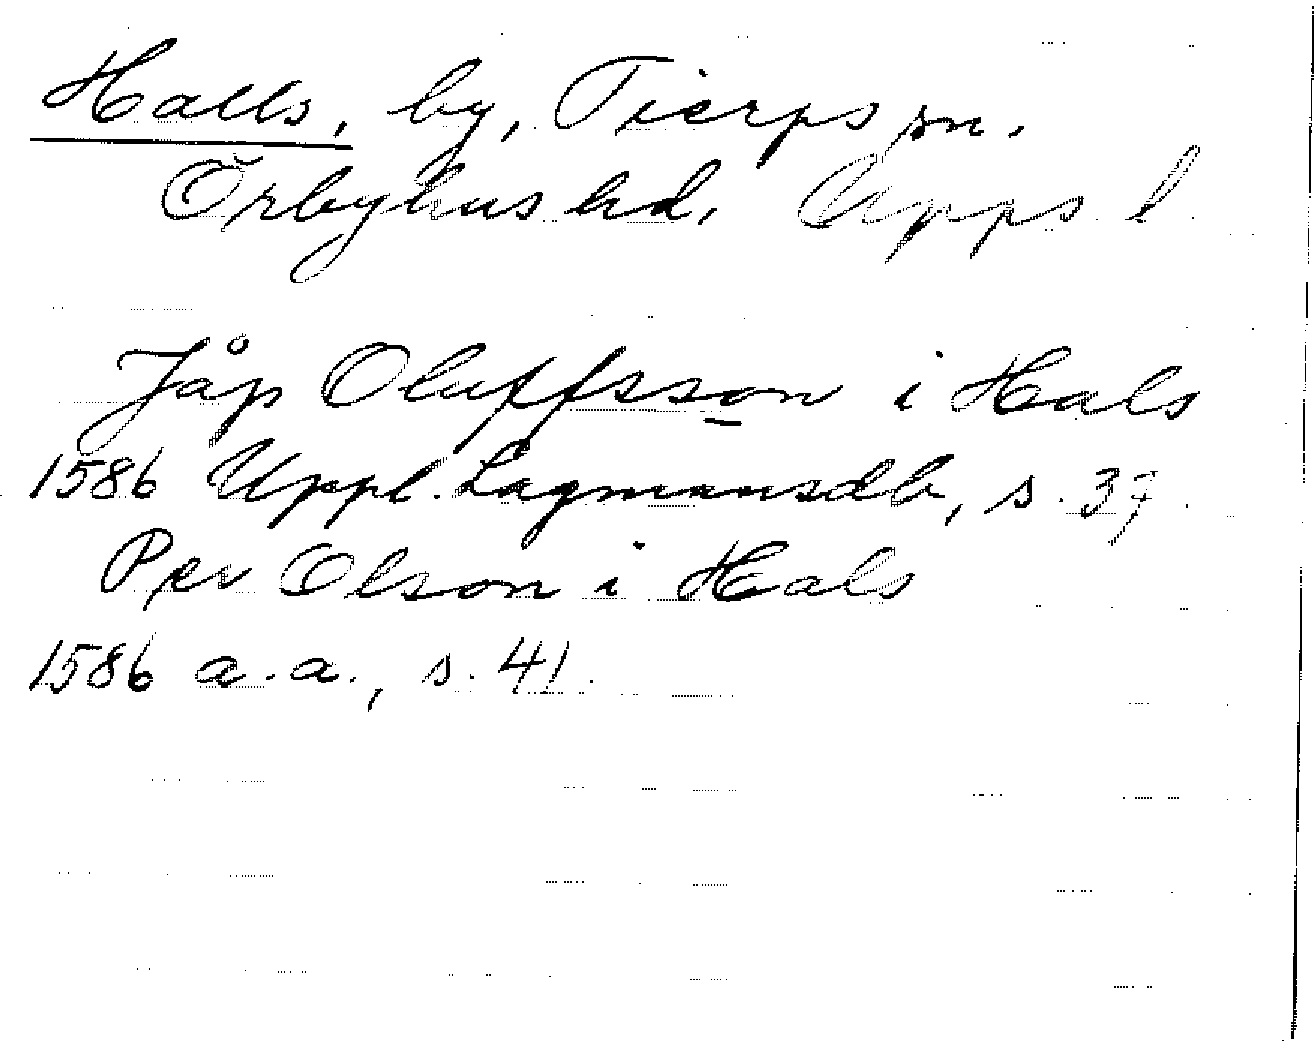 Halls, by, Tierps sn.
Örbyhus hd. Upps l
Jåp Oluffsson i Hals
1586 Uppl. Lagmansdb, s. 37.
Per Olson i Hals
1586 a.a., s. 41.